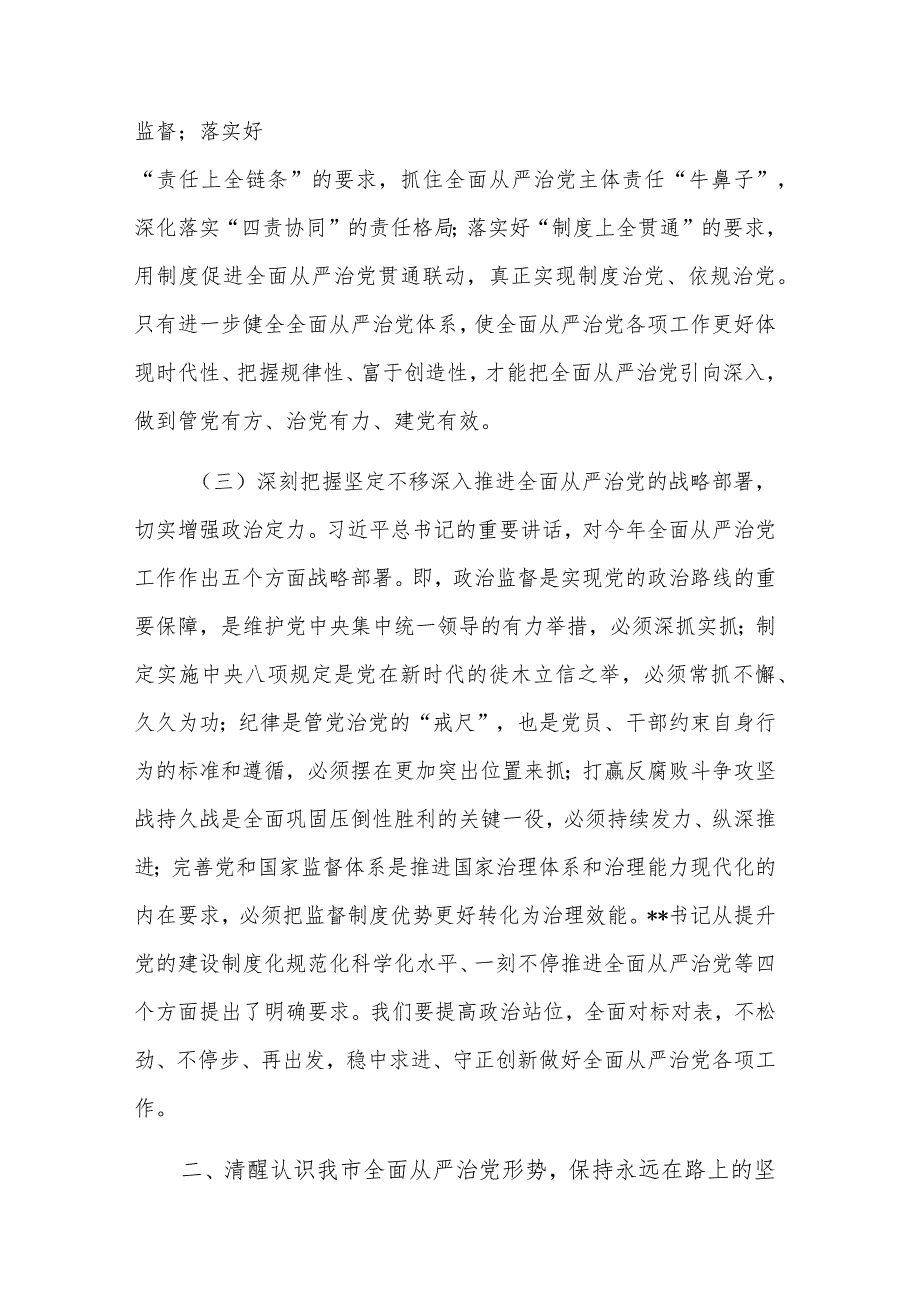 监督；落实好
“责任上全链条”的要求，抓住全面从严治党主体责任“牛鼻子”，
深化落实“四责协同”的责任格局；落实好“制度上全贯通”的要求，
用制度促进全面从严治党贯通联动，真正实现制度治党、依规治党。
只有进一步健全全面从严治党体系，使全面从严治党各项工作更好体
现时代性、把握规律性、富于创造性，才能把全面从严治党引向深入，
做到管党有方、治党有力、建党有效。
（三）深刻把握坚定不移深入推进全面从严治党的战略部署，
切实增强政治定力。习近平总书记的重要讲话，对今年全面从严治党
工作作出五个方面战略部署。即，政治监督是实现党的政治路线的重
要保障，是维护党中央集中统一领导的有力举措，必须深抓实抓；制
定实施中央八项规定是党在新时代的徙木立信之举，必须常抓不懈、
久久为功；纪律是管党治党的“戒尺”，也是党员、干部约束自身行
为的标准和遵循，必须摆在更加突出位置来抓；打赢反腐败斗争攻坚
战持久战是全面巩固压倒性胜利的关键一役，必须持续发力、纵深推
进；完善党和国家监督体系是推进国家治理体系和治理能力现代化的
内在要求，必须把监督制度优势更好转化为治理效能。**书记从提升
党的建设制度化规范化科学化水平、一刻不停推进全面从严治党等四
个方面提出了明确要求。我们要提高政治站位，全面对标对表，不松
劲、不停步、再出发，稳中求进、守正创新做好全面从严治党各项工
作。
二、清醒认识我市全面从严治党形势，保持永远在路上的坚